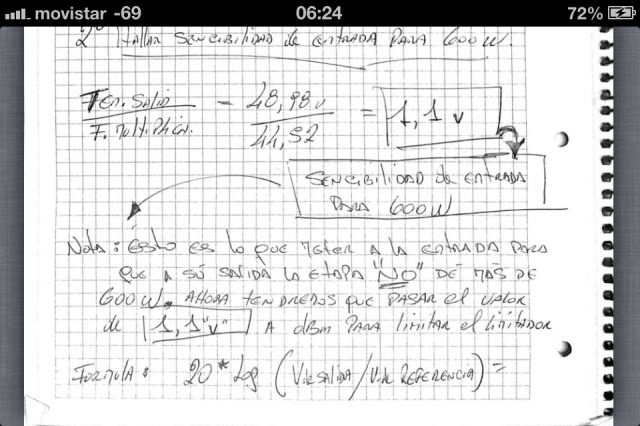 movistar -69 06:24 72%
2º Hallar SENCIBILIDAD de entrada PARA 600W.
Ten. Salida / F. Multiplicn. = 48,98v / 44,92 = 1,1v
SENCIBILIDAD de entrada
PARA 600W
Nota: ésto es lo que meter a la entrada para
que a su salida la etapa "NO" de mas de
600W. AHORA TENDREMOS que pasar el valor
de 1,1"v" A dBm PARA limitar el limitador
Formula: 20 * Log (V.de SALIDA / V.de REFERENCIA) =